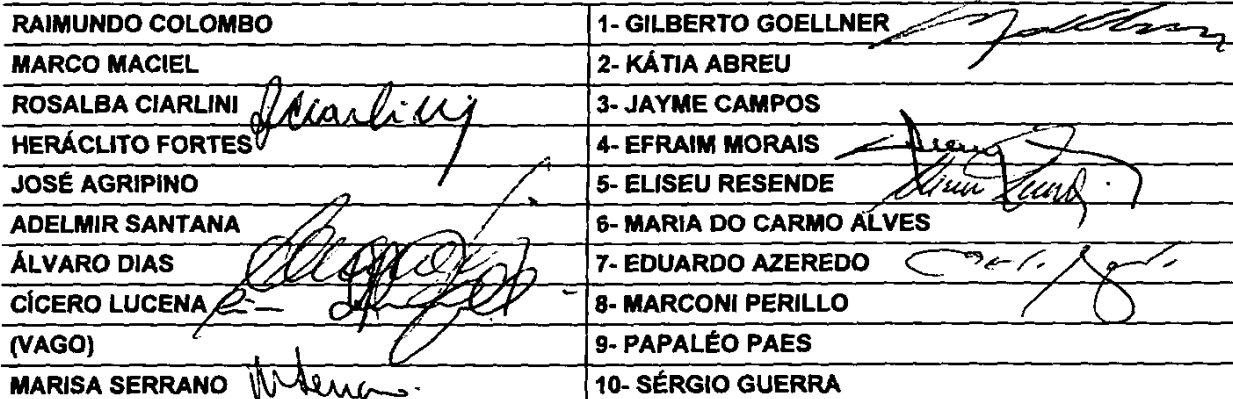 RAIMUNDO COLOMBO 1- GILBERTO GOELLNER
MARCO MACIEL 2- KÁTIA ABREU
ROSALBA CIARLINI 3- JAYME CAMPOS
HERÁCLITO FORTES 4- EFRAIM MORAIS
JOSÉ AGRIPINO 5- ELISEU RESENDE
ADELMIR SANTANA 6- MARIA DO CARMO ALVES
ÁLVARO DIAS 7- EDUARDO AZEREDO
CÍCERO LUCENA 8- MARCONI PERILLO
(VAGO) 9- PAPALÉO PAES
MARISA SERRANO 10- SÉRGIO GUERRA